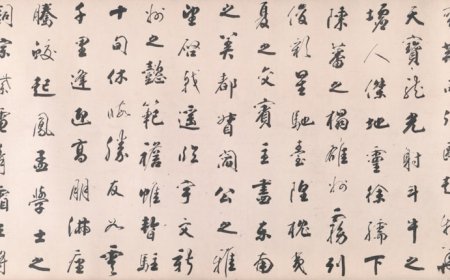 天寶龍光射斗牛之
墟人傑地靈徐孺下
陳蕃之榻雄州霧列
俊彩星馳臺隍枕夷
夏之交賓主盡東南
之美都督閻公之雅
望棨戟遙臨宇文新
州之懿範襜帷暫駐
十旬休暇勝友如雲
千里逢迎高朋滿座
騰蛟起鳳孟學士之
詞宗紫電青霜王將